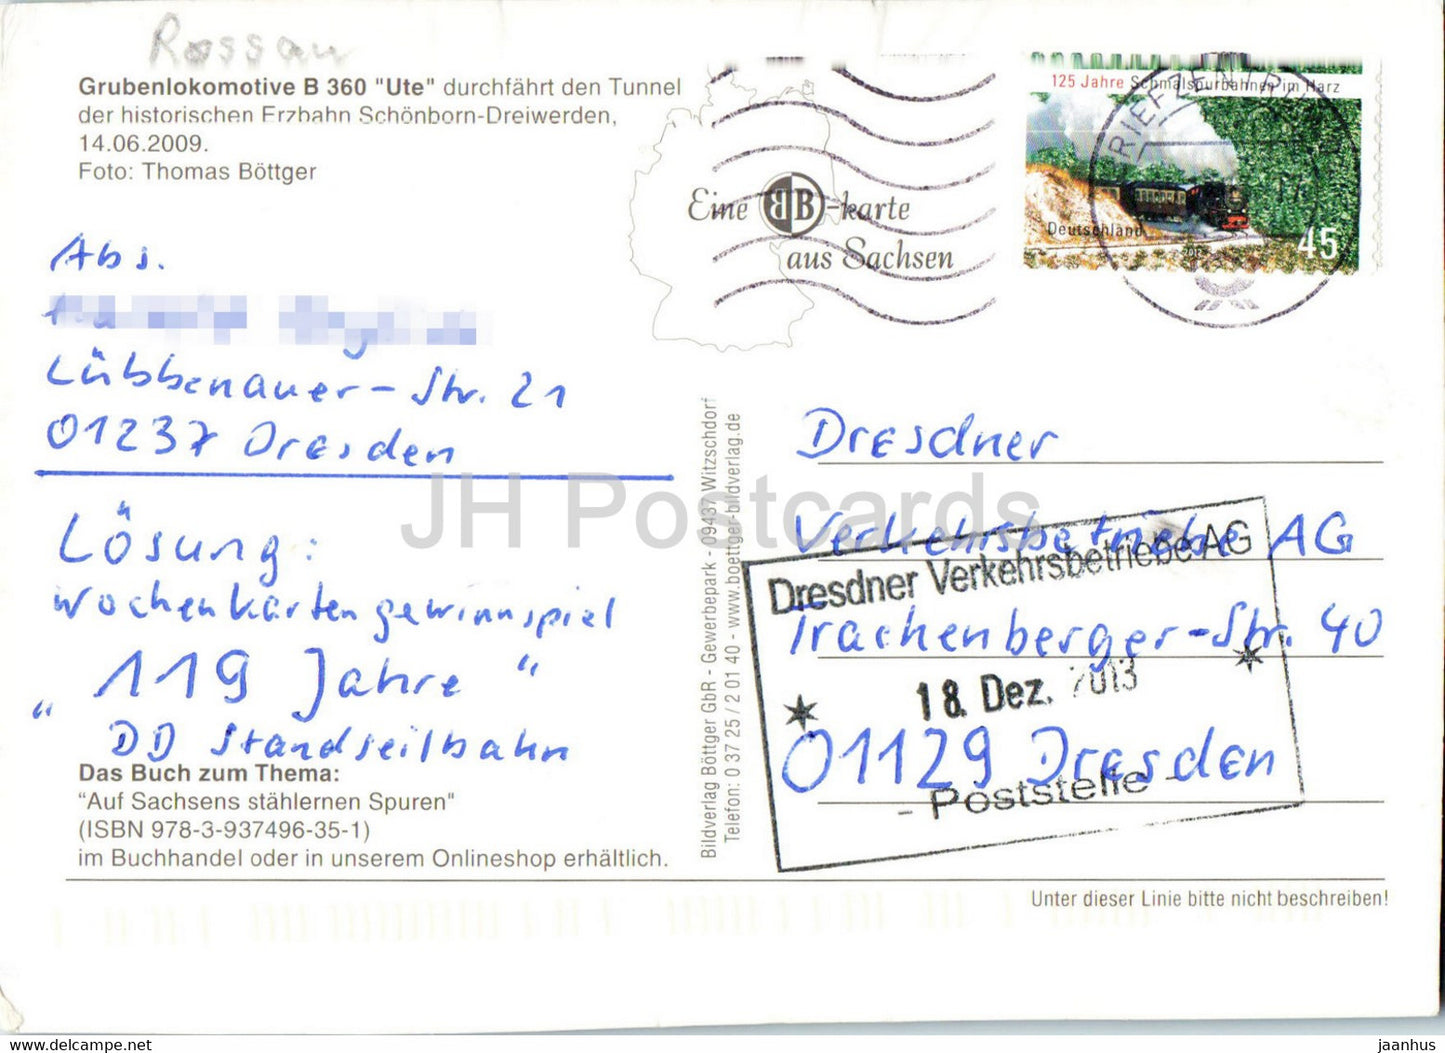 Rossau
Grubenlokomotive B 360 "Ute" durchfährt den Tunnel
der historischen Erzbahn Schönborn-Dreiwerden,
14.06.2009.
Foto: Thomas Böttger
Eine BB-karte
aus Sachsen
125 Jahre Schmalspurbahnen im Harz
Deutschland
45
BRIEFZENTRUM
Abs.
Lübbenauer-Str. 21
01237 Dresden
Lösung:
Wochenkartengewinnspiel
„119 Jahre“
DD Standseilbahn
Das Buch zum Thema:
"Auf Sachsens stählernen Spuren"
(ISBN 978-3-937496-35-1)
im Buchhandel oder in unserem Onlineshop erhältlich.
Bildverlag Böttger GbR - Gewerbepark - 09437 Witzschdorf
Telefon: 0 37 25 / 2 01 40 - www.boettger-bildverlag.de
Dresdner
Verkehrsbetriebe AG
Trachenberger-Str. 40
01129 Dresden
Dresdner Verkehrsbetriebe AG
18. Dez. 2013
- Poststelle -
Unter dieser Linie bitte nicht beschreiben!
JH Postcards
jaanhus https://jhpostcards.com